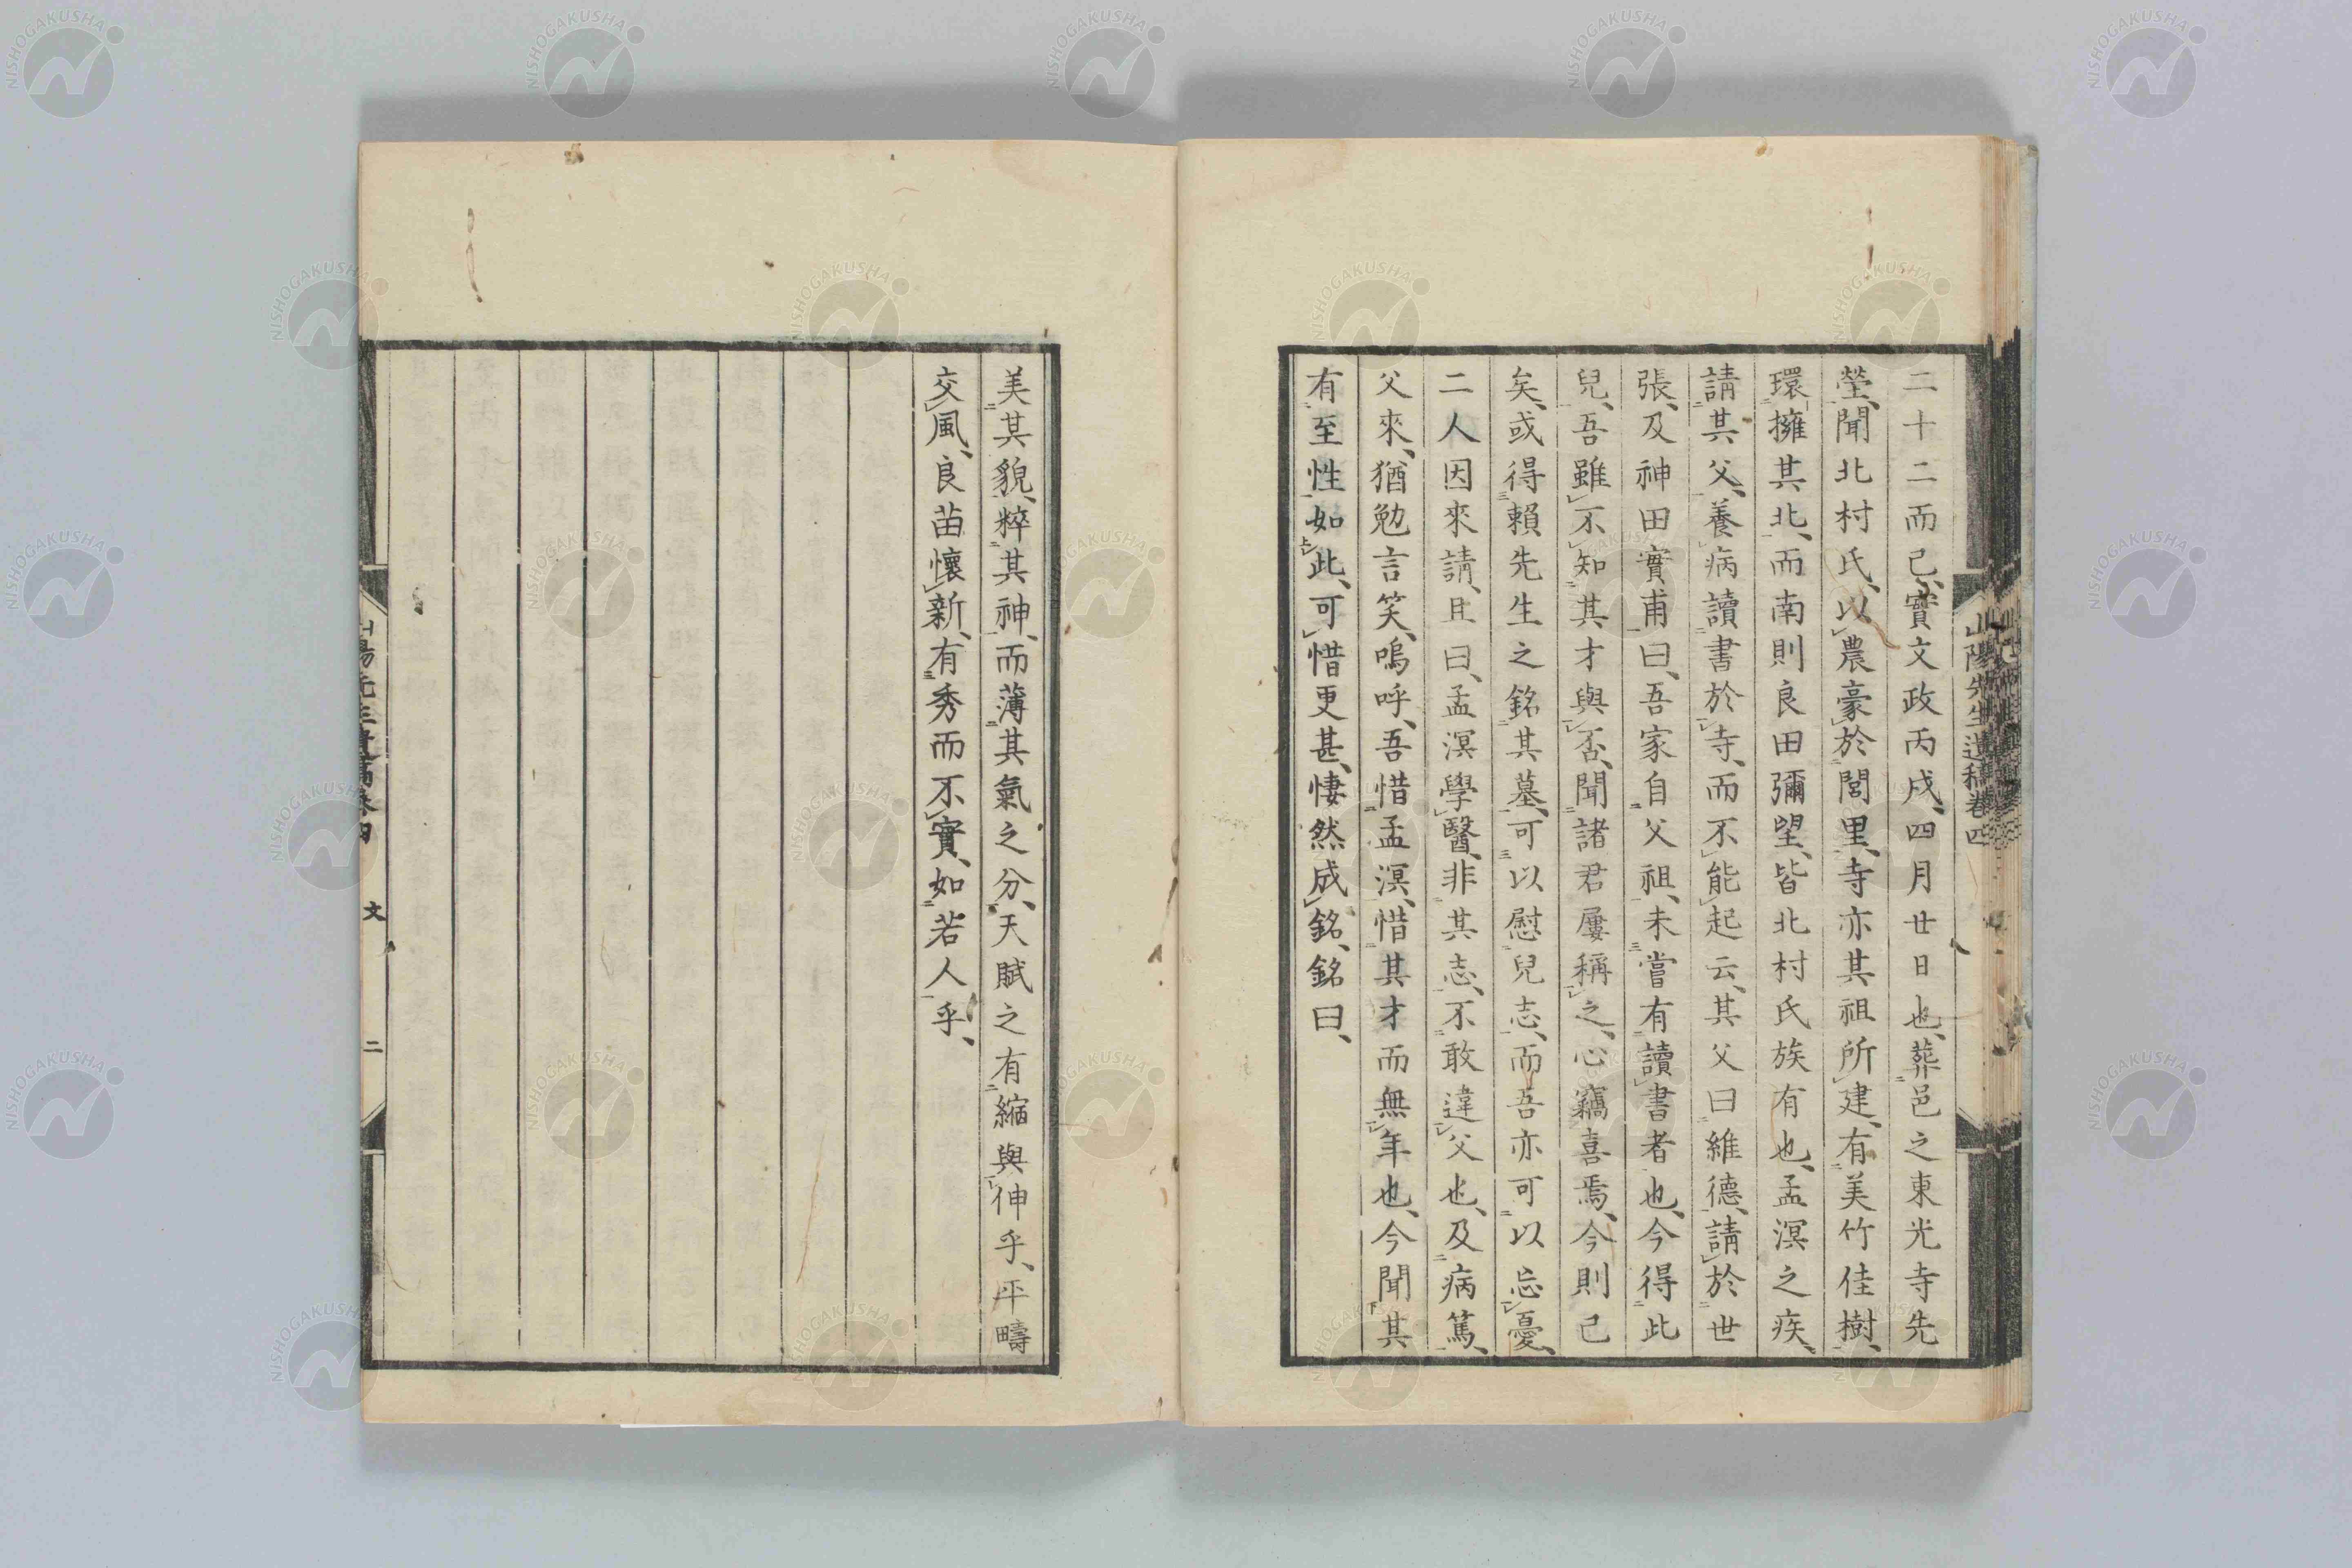 山陽先生遺稿卷四
二十二而已、實文政丙戌、四月廿日也、葬邑之東光寺先
塋、聞北村氏、以農豪於閭里、寺亦其祖所建、有美竹佳樹、
環擁其北、而南則良田彌望、皆北村氏族有也、孟溟之疾、
請其父、養病讀書於寺、而不能起云、其父曰維德、請於世
張、及神田實甫曰、吾家自父祖、未嘗有讀書者也、今得此
兒、吾雖不知其才與否、聞諸君屢稱之、心竊喜焉、今則已
矣、或得賴先生之銘其墓、可以慰兒志、而吾亦可以忘憂、
二人因來請、且曰、孟溟學醫、非其志、不敢違父也、及病篤、
父來、猶勉言笑、嗚呼、吾惜孟溟、惜其才而無年也、今聞其
有至性如此、可惜更甚、悽然成銘、銘曰、
美其貌、粹其神、而薄其氣之分、天賦之有縮與伸乎、平疇
交風、良苗懷新、有秀而不實、如若人乎、
山陽先生遺稿卷四 文 二
NISHOGAKUSHA